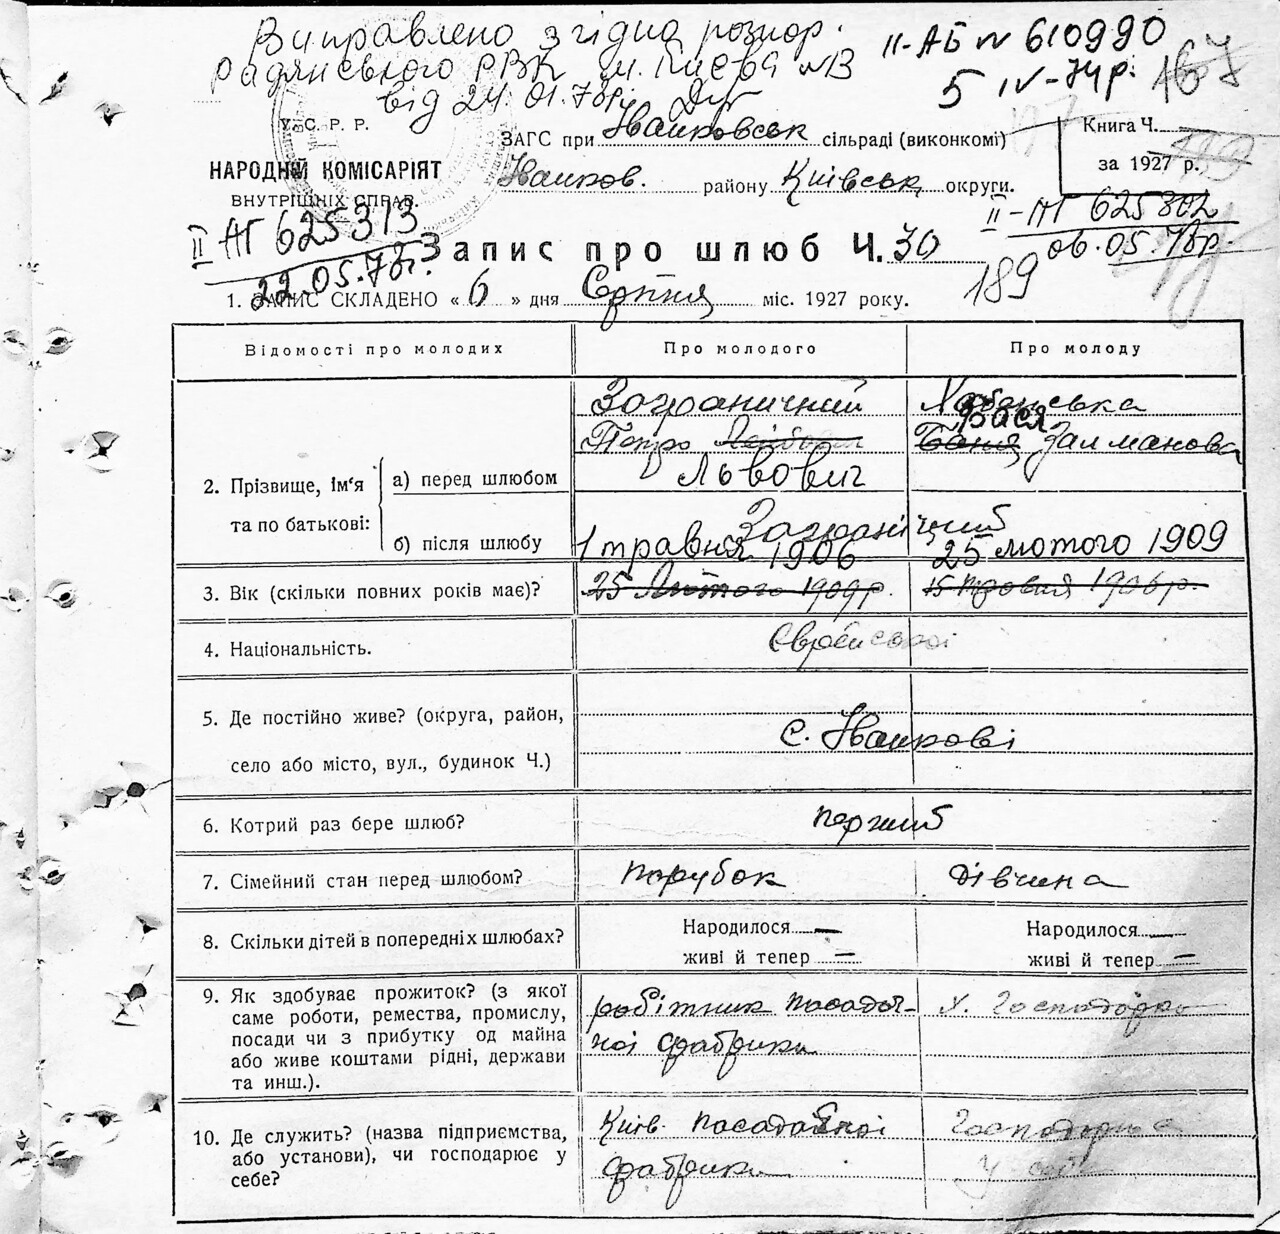 Виправлено згідно розпор.
Радянського РВК м. Києва №13
від 24.01.78р.
ІІ-АБ № 610990
5 IV-74р.
167
У. С. Р. Р.
НАРОДНІЙ КОМІСАРІЯТ
ВНУТРІШНІХ СПРАВ.
ЗАГС при Іванковськ сільраді (виконкомі)
Іванков. району Київськ округи.
Книга Ч.
за 1927 р.
ІІ-АГ 625313
22.05.78г.
ІІ-АГ 625302
06.05.78р.
Запис про шлюб Ч. 30
189
1. ЗАПИС СКЛАДЕНО « 6 » дня Серпня міс. 1927 року.
Відомості про молодих Про молодого Про молоду
2. Прізвище, ім'я та по батькові:
а) перед шлюбом
Заграничний Хабенська
Петро Лейбов Бася Залманова
Львович
б) після шлюбу
Заграніций
1 травня 1906 25 лютого 1909
3. Вік (скільки повних років має)? 25 Лютого 1909р. 15 травня 1906р.
4. Національність. Єврейської
5. Де постійно живе? (округа, район,
село або місто, вул., будинок Ч.)
с. Іванкові
6. Котрий раз бере шлюб? перший
7. Сімейний стан перед шлюбом? парубок дівчина
8. Скільки дітей в попередніх шлюбах? Народилося — Народилося —
живі й тепер — живі й тепер —
9. Як здобуває прожиток? (з якої
саме роботи, ремества, промислу,
посади чи з прибутку од майна
або живе коштами рідні, держави
та инш.).
робітник посадоч-
ної фабрики
х. Господарка
10. Де служить? (назва підприємства,
або установи), чи господарює у
себе?
Київ. посадочної
фабрики
Господарює
у себе